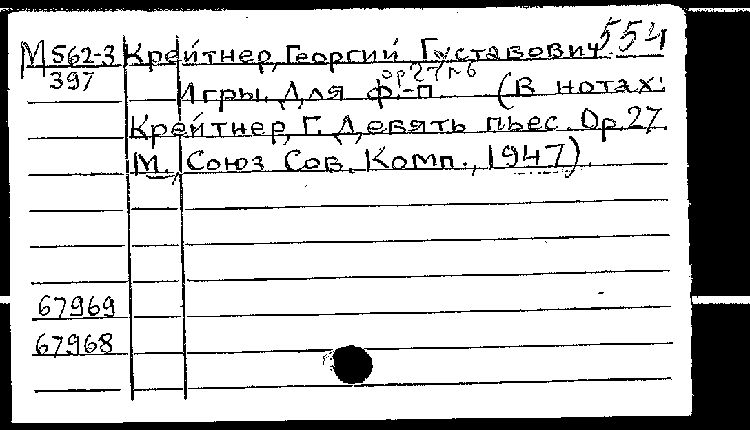 М 562-3 Крейтнер, Георгий Густавович 554
397 Игры. Для ф.-п. ор 27 №6 (В нотах:
Крейтнер, Г. Девять пьес. Ор. 27
М., Союз Сов. Комп., 1947).
67969
67968